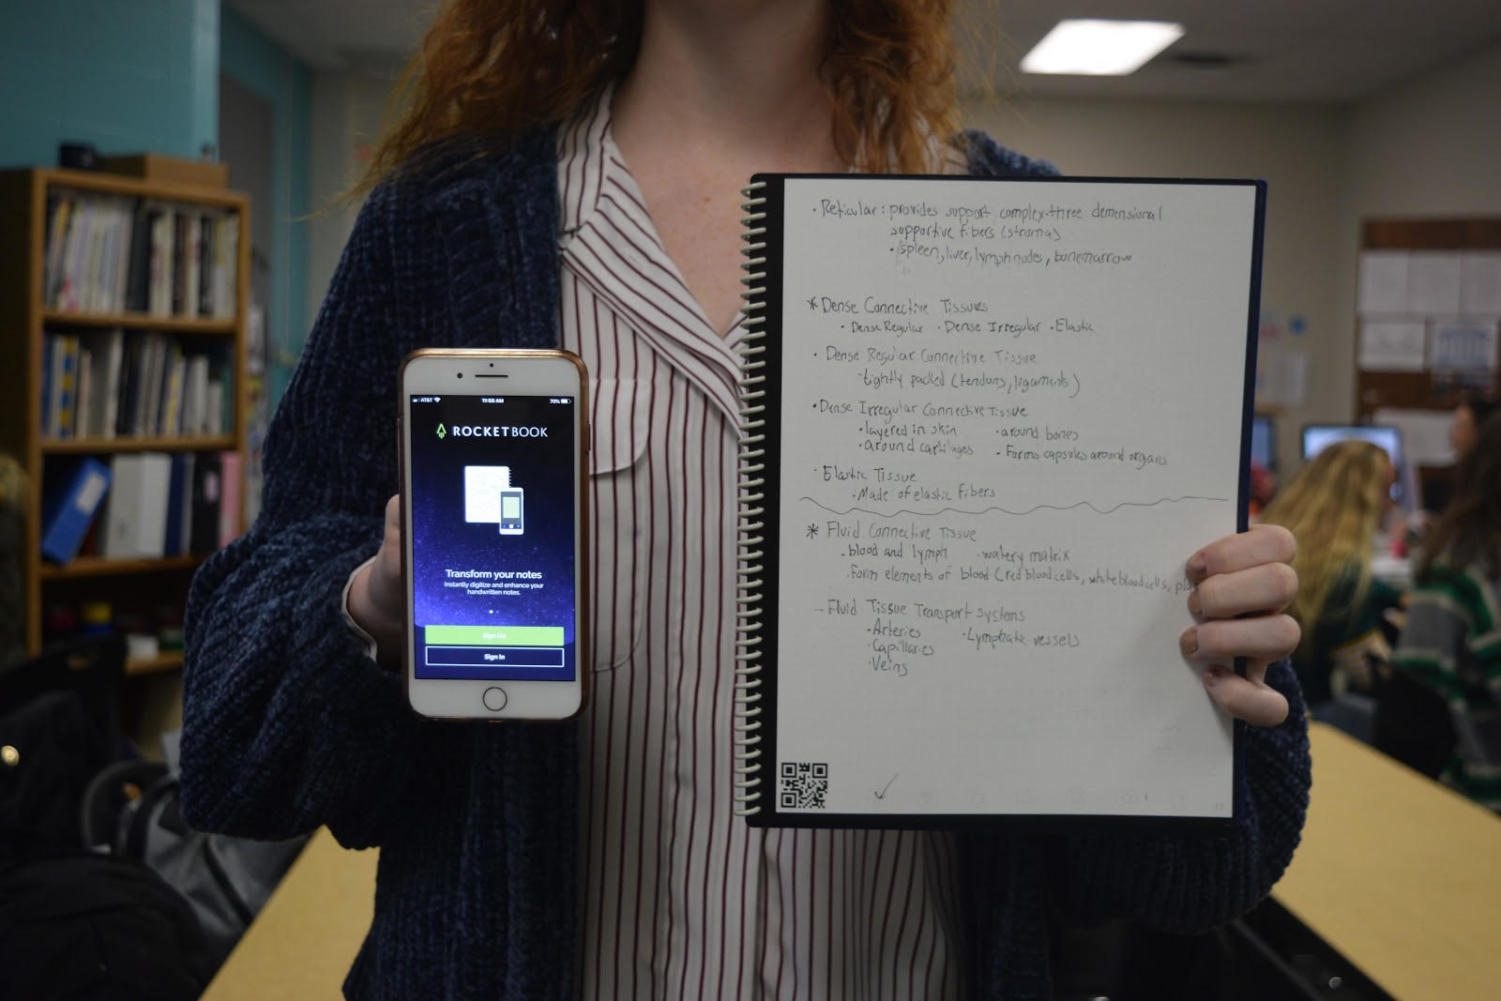 AT&T 11:58 AM 70%
ROCKETBOOK
Transform your notes
Instantly digitize and enhance your
handwritten notes.
Sign Up
Sign In
• Reticular: provides support complex three demensional
supportive fibers (stroma)
• spleen, liver, lymph nodes, bonemarrow
* Dense Connective Tissues
• Dense Regular • Dense Irregular • Elastic
• Dense Regular Connective Tissue
- tightly packed (tendons, ligaments)
• Dense Irregular Connective Tissue
• layered in skin • around bones
• around cartilages - Forms capsules around organs
• Elastic Tissue
• Made of elastic fibers
* Fluid Connective Tissue
• blood and lymph • watery matrix
• form elements of blood (red blood cells, white blood cells,
- Fluid Tissue Transport Systems
• Arteries • Lymphatic vessels
• Capillaries
• Veins